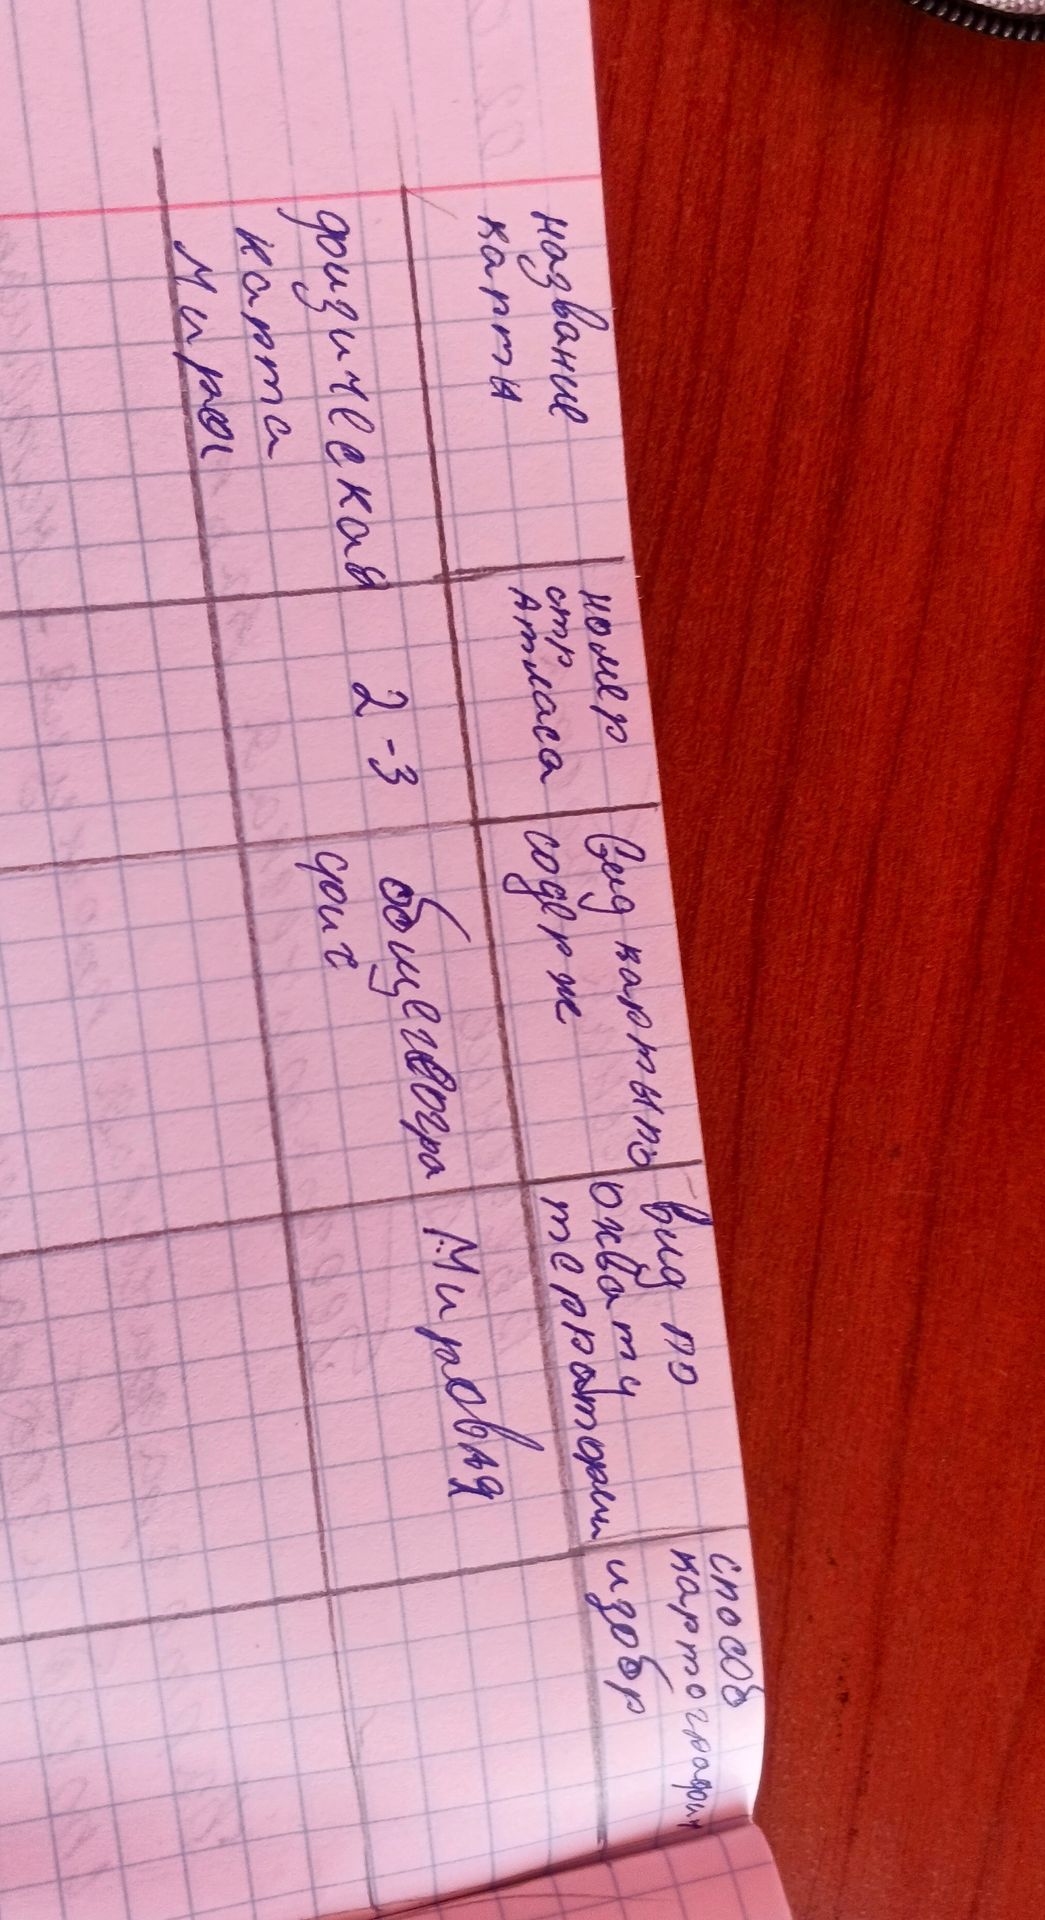 название
карты
номер
отр
Атласа
Вид карты по
содерж
Вид по
охвату
территории
способ
картографич
изобр
физическая
карта
Мира
2-3
общегеогра
фич
Мировая